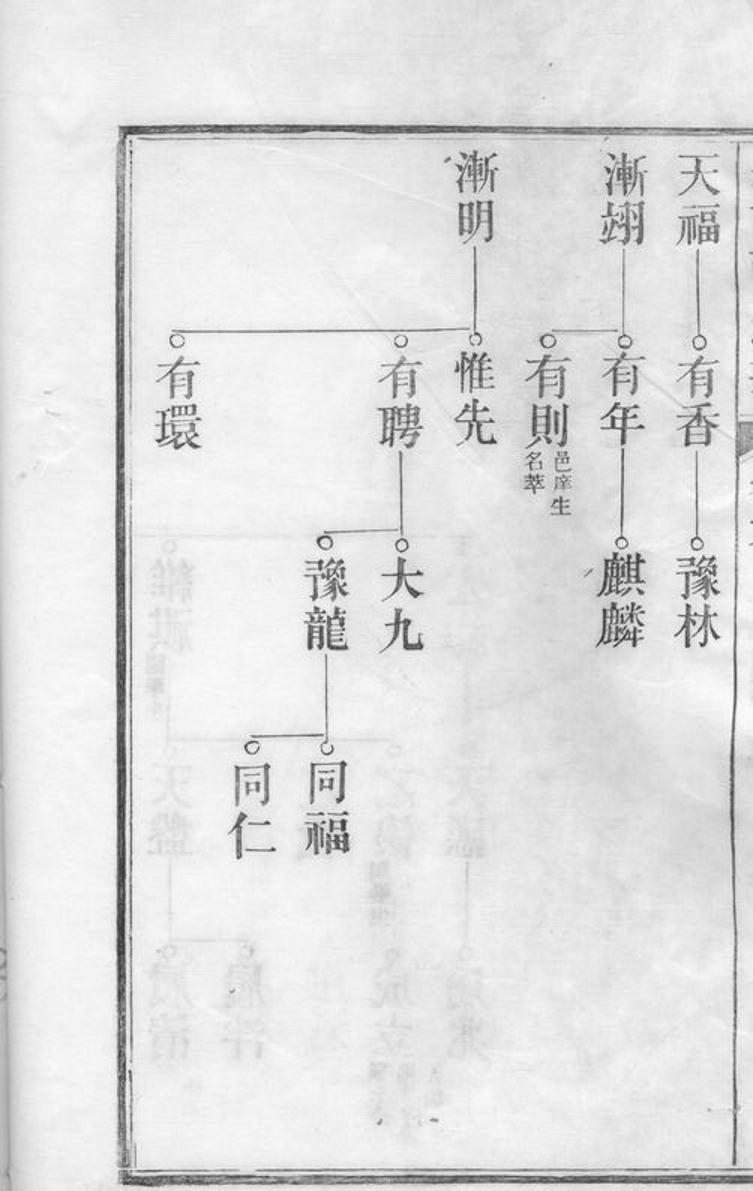 天福
有香
豫林
漸翊
有年
麒麟
有則
邑庠生
名萃
漸明
惟先
有聘
大九
豫龍
同福
同仁
有環